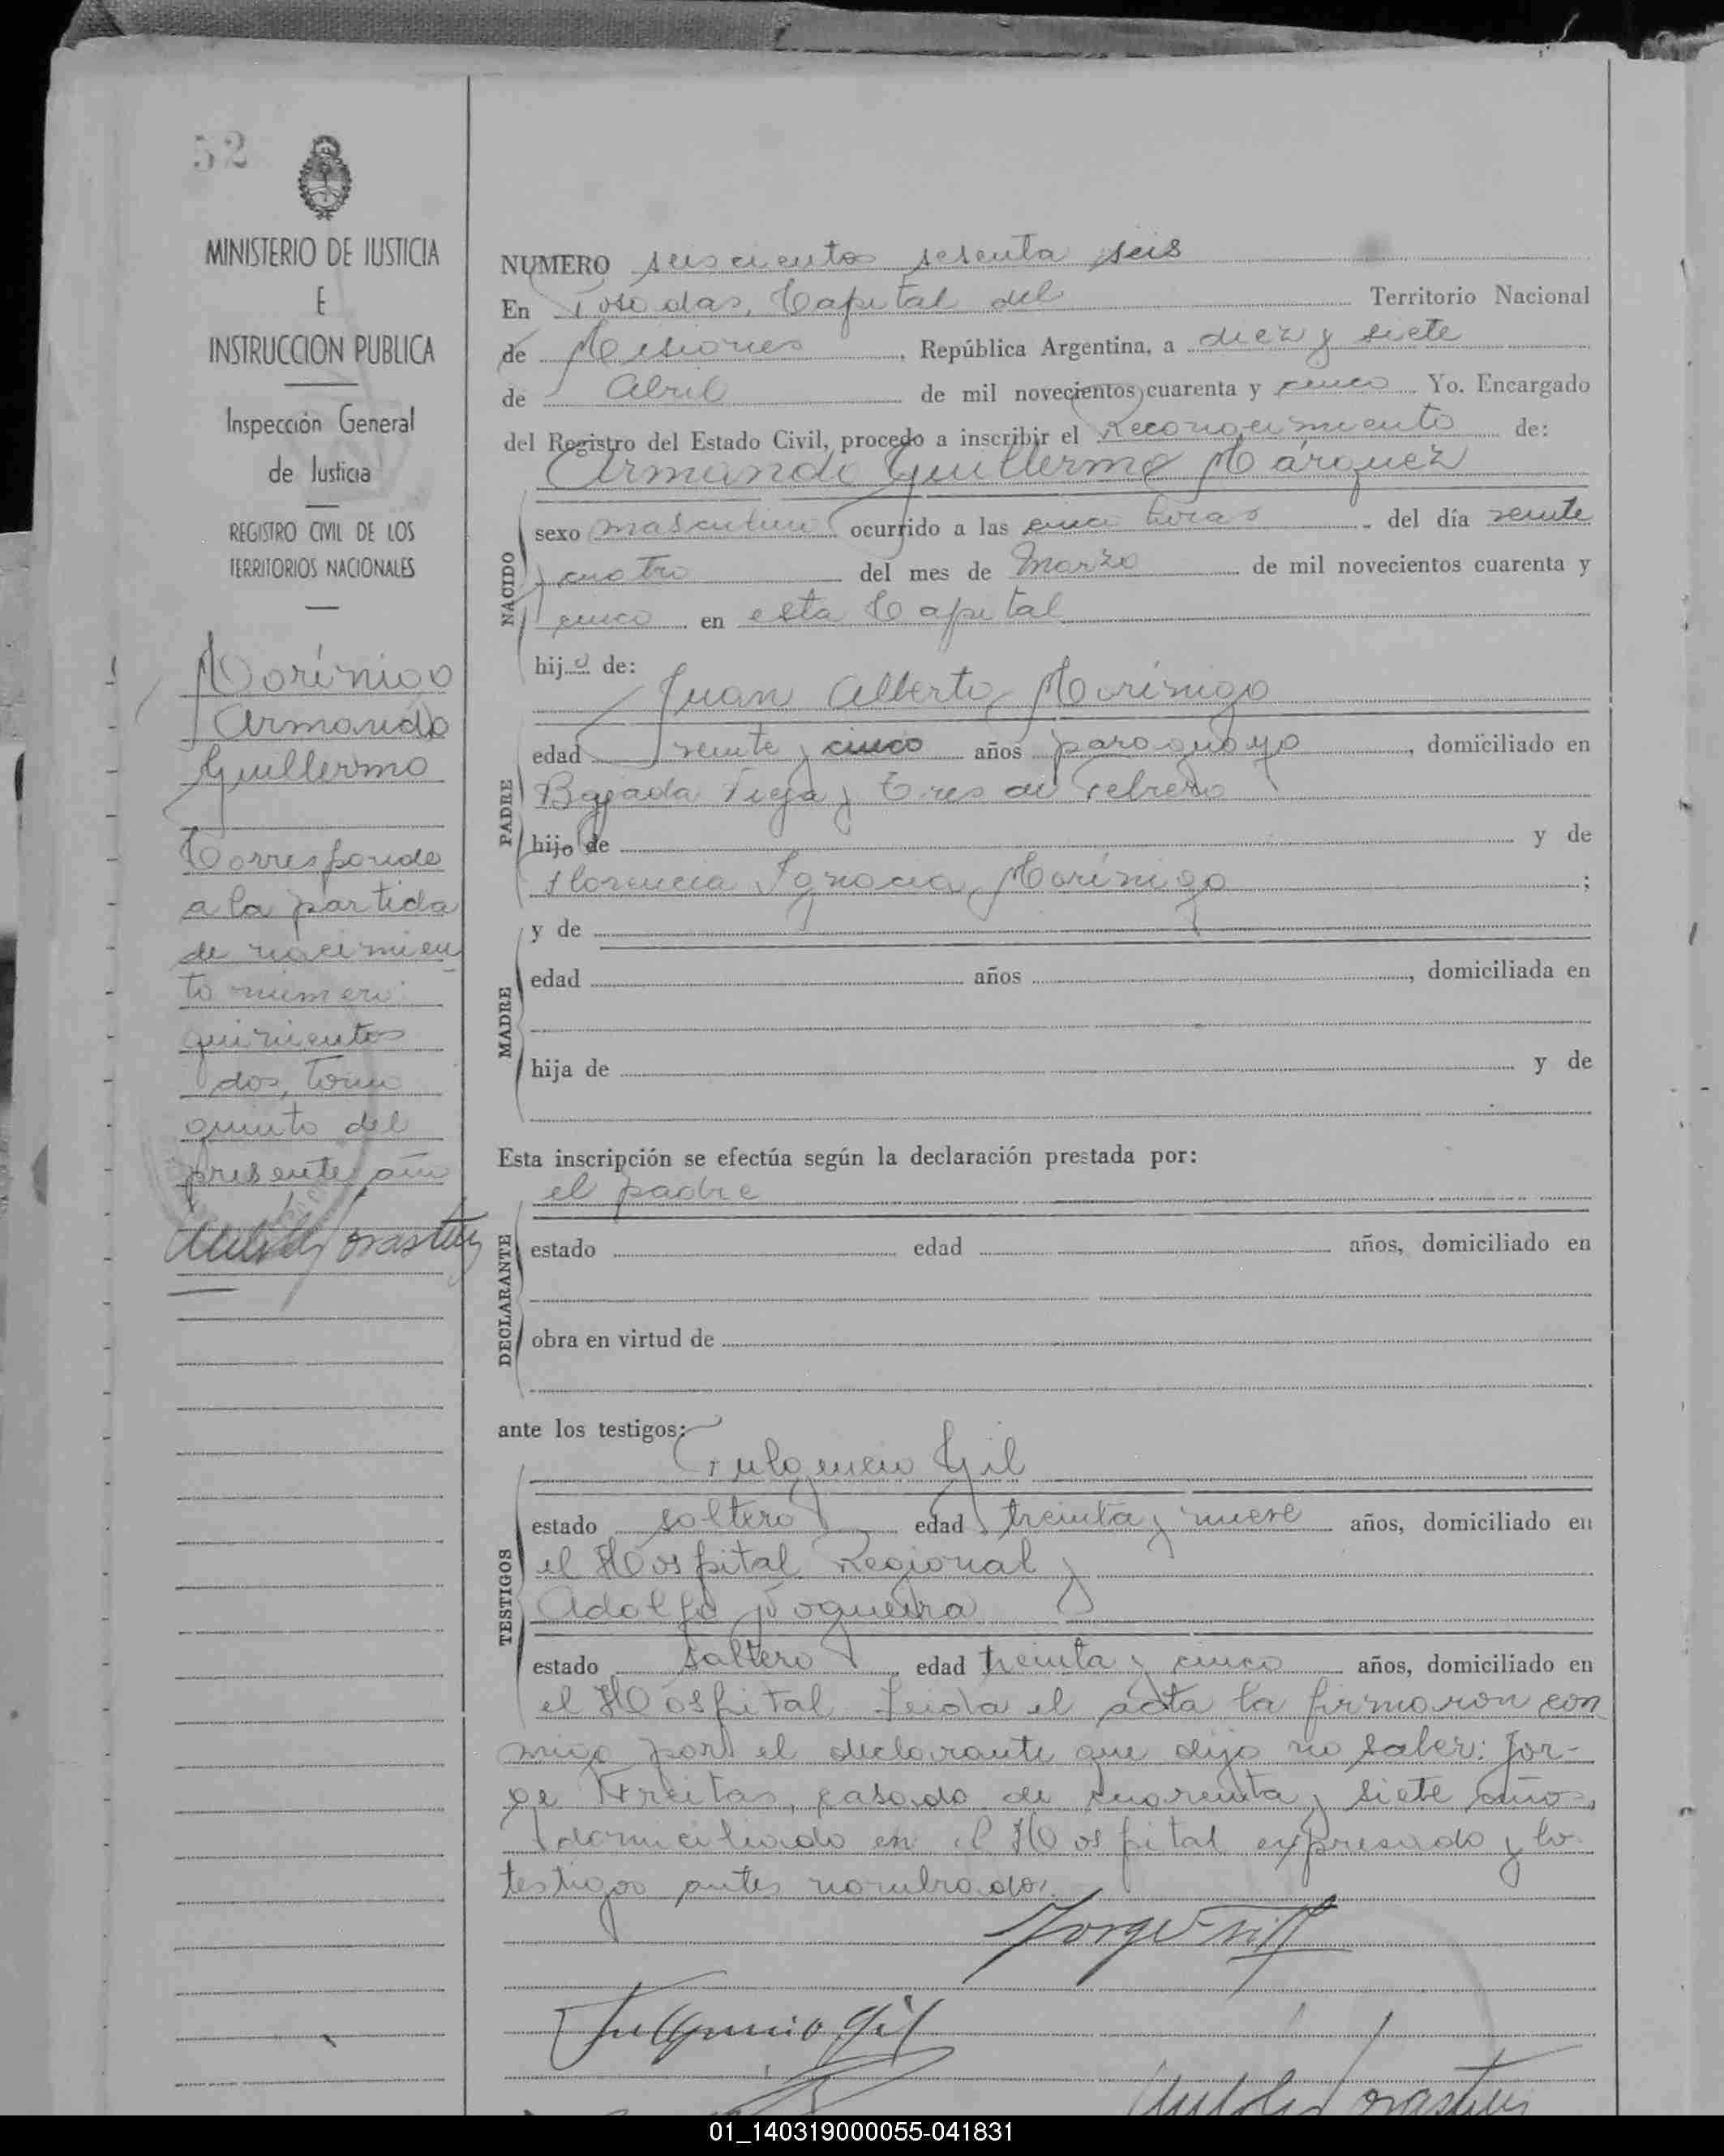 52
MINISTERIO DE JUSTICIA
E
INSTRUCCION PUBLICA
Inspección General
de Justicia
REGISTRO CIVIL DE LOS
TERRITORIOS NACIONALES
Morínigo
Armando
Guillermo
Corresponde
a la partida
de nacimien
to número
quinientos
dos, tomo
quinto del
presente año
NUMERO seiscientos sesenta seis
En Posadas, Capital del Territorio Nacional
de Misiones, República Argentina, a diez y siete
de Abril de mil novecientos cuarenta y cinco Yo. Encargado
del Registro del Estado Civil, procedo a inscribir el Reconocimiento de:
Armando Guillermo Márquez
NACIDO
sexo masculino ocurrido a las cinco horas del día veinte
y cuatro del mes de Marzo de mil novecientos cuarenta y
cinco en esta Capital
hijo de:
Juan Alberto Morínigo
PADRE
edad veinte y cinco años paraguayo, domiciliado en
Bajada Vieja y Tres de Febrero
hijo de y de
Florencia Ignacia Morínigo;
y de
MADRE
edad años, domiciliada en
hija de y de
Esta inscripción se efectúa según la declaración prestada por:
el padre
DECLARANTE
estado edad años, domiciliado en
obra en virtud de
ante los testigos:
Fulgencio Gil
TESTIGOS
estado soltero edad treinta y nueve años, domiciliado en
el Hospital Regional y
Adolfo Nogueira
estado soltero edad treinta y cinco años, domiciliado en
el Hospital Leida el acta la firmaron con
migo por el declarante que dijo no saber: Jor-
ge Freitas, casado de cuarenta y siete años,
domiciliado en el Hospital expresado y los
testigos antes nombrados.
Fulgencio Gil
01_140319000055-041831